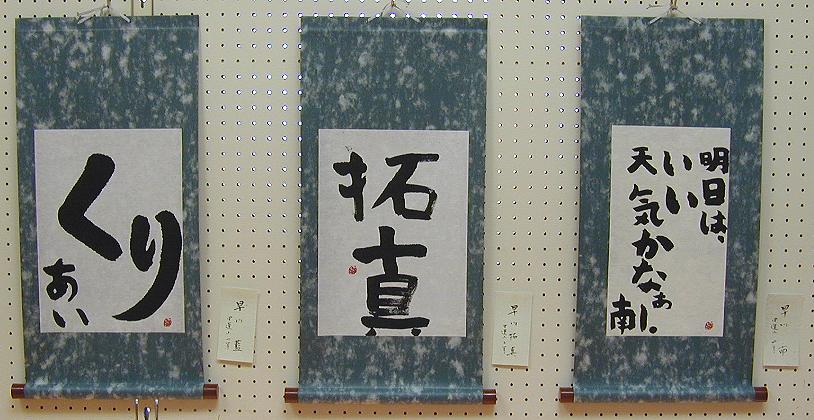 くり
あい
拓真
明日は、
いい
天気かなぁ
南
早川 藍
早川 拓真
早川 南